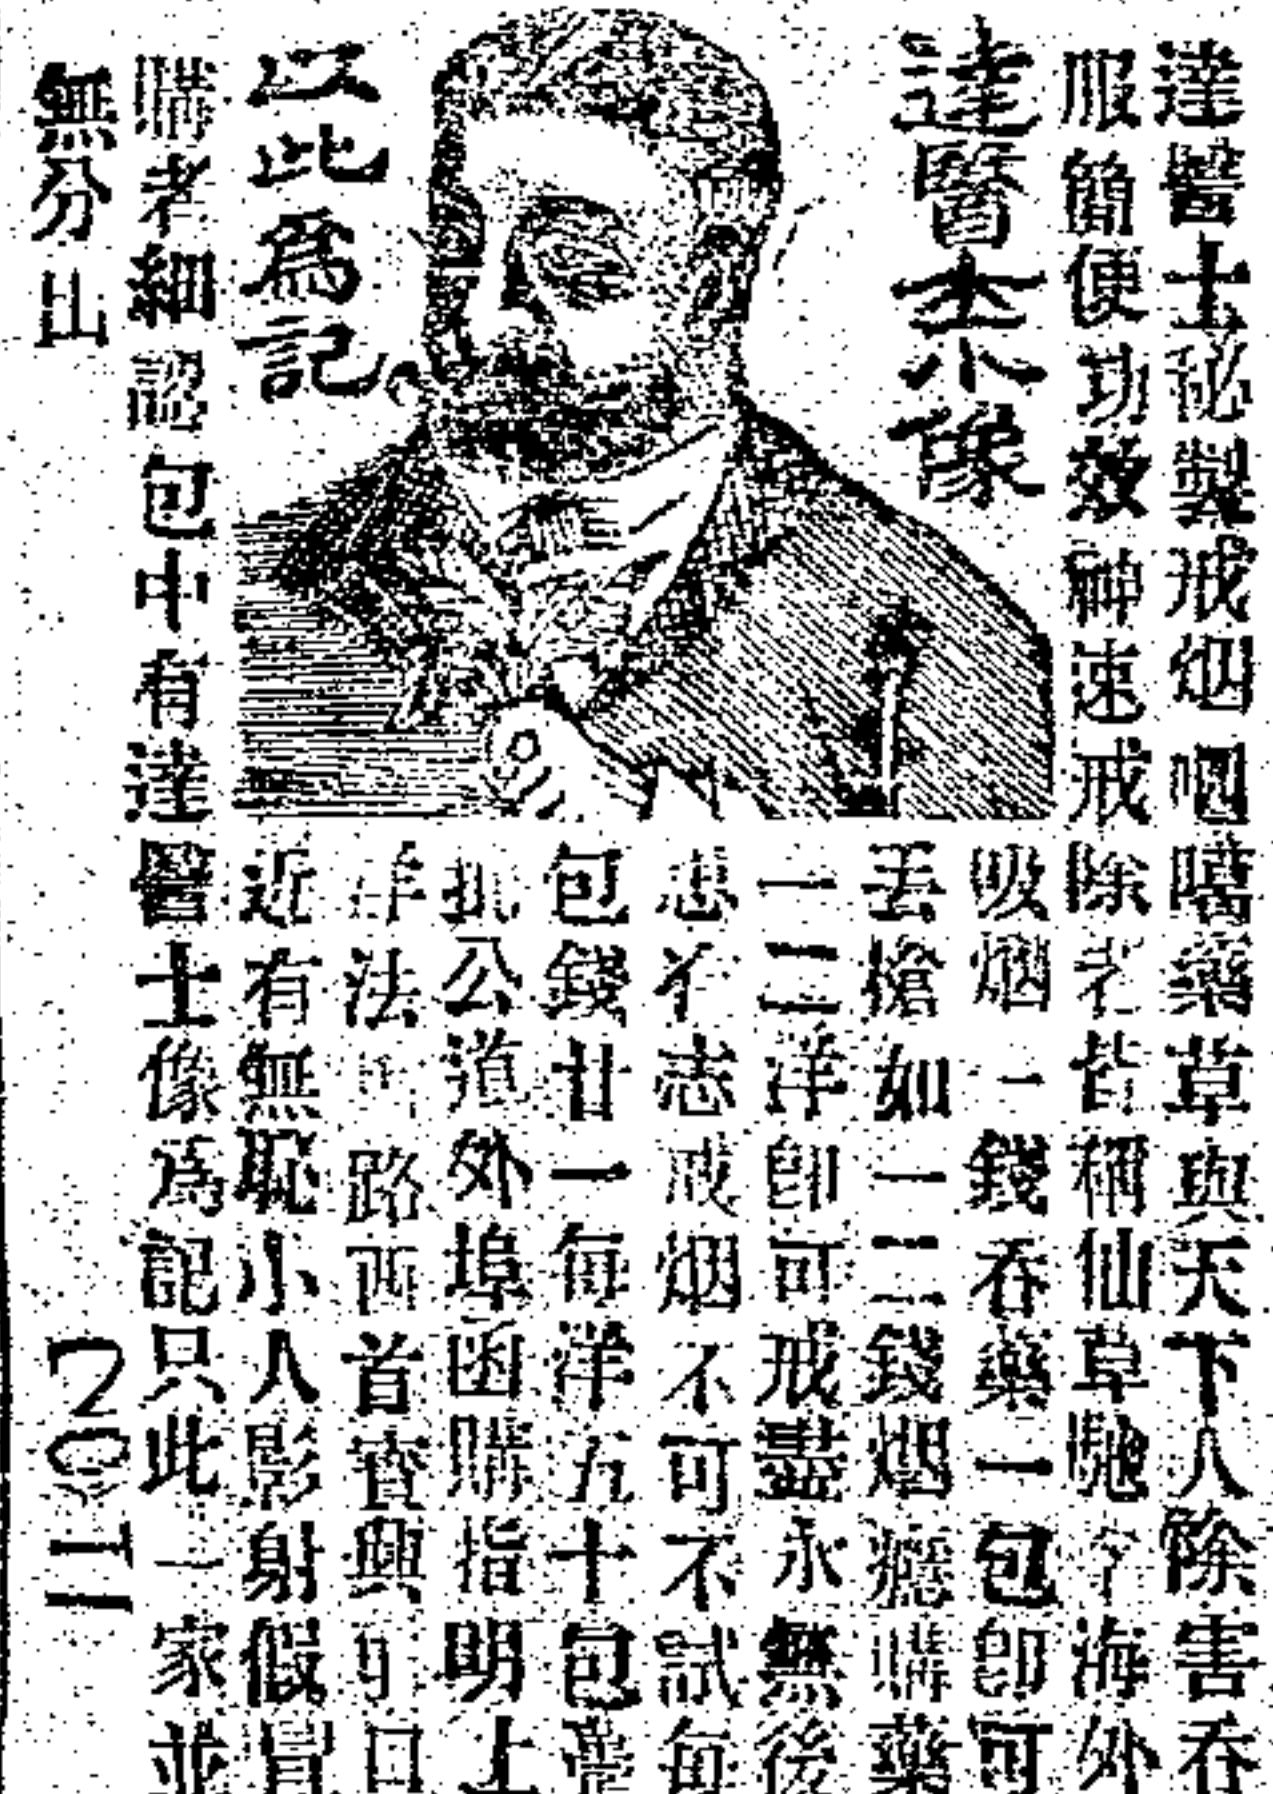 達醫士秘製戒烟嗯噃藥草與天下人除害吞
服簡便功效神速戒除者皆稱仙草馳名海外
達醫士小像
吸烟一錢吞藥一包即可
丟槍如一二錢烟癮購藥
一二洋即可戒盡永無後
患有志戒烟不可不試每
包錢廿一每洋五十包
批公道外埠函購指明上
法 路西首寶興 口
以此爲記
近有無恥小人影射假冒
購者細認包中有達醫士像爲記只此一家並
無分出
二〇二